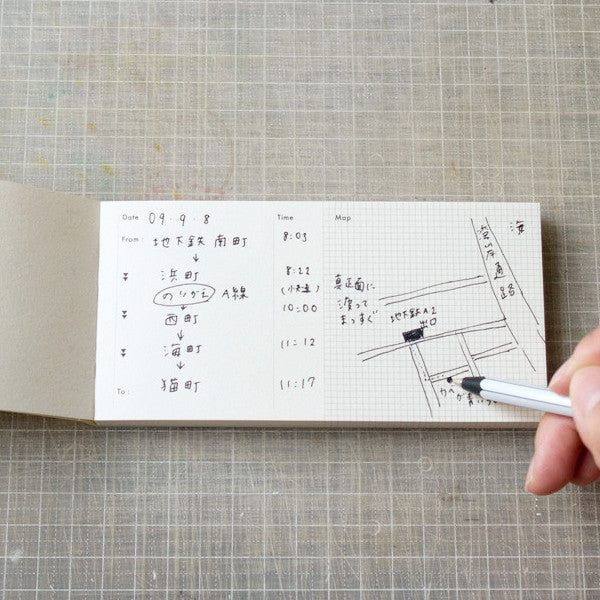 Date 09.9.8
Time
Map
From: 地下鉄 南町
8:03
浜町
8:22
のりかえ A線
10:00
西町
海町
11:12
To: 猫町
11:17
海
沿岸通路
真正面に
渡って
まっすぐ
地下鉄A2
出口
かべが青い